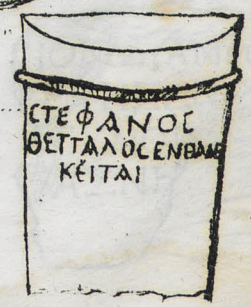 ϹΤΕΦΑΝΟϹ
ΘΕΤΤΑΛΟϹΕΝΘΑΔΕ
ΚΕΙΤΑΙ